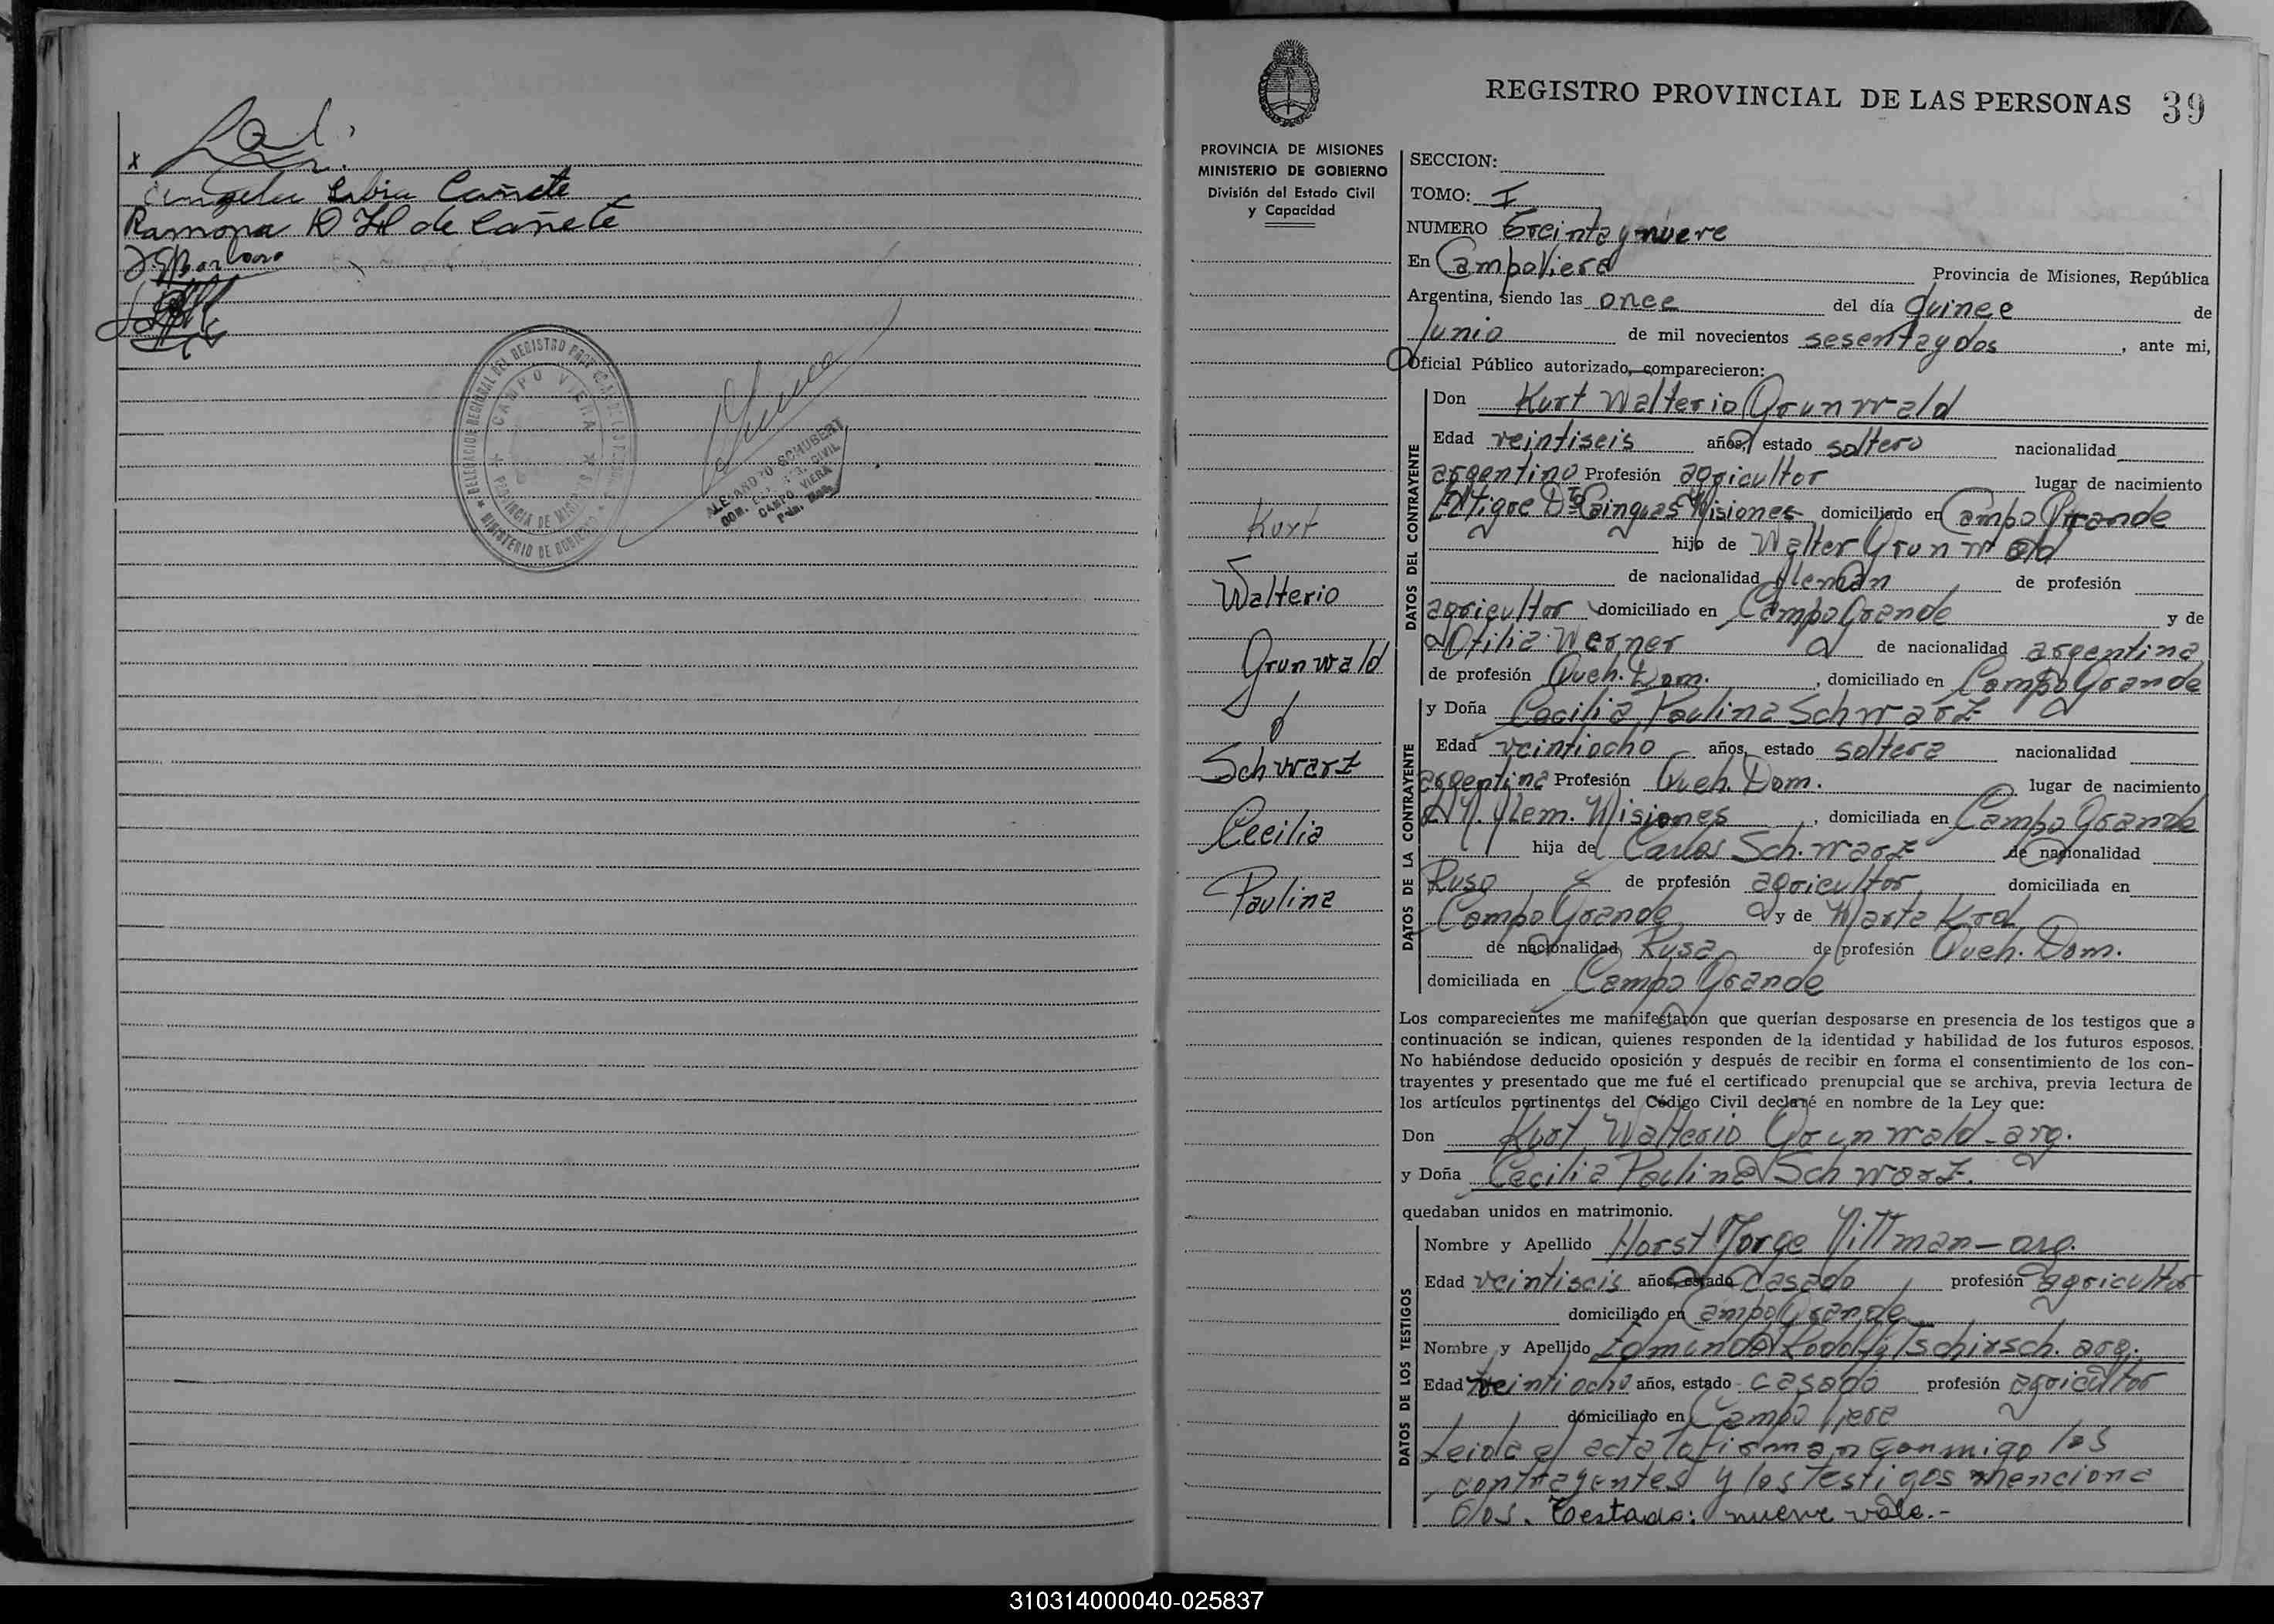 Angela Livia Cañete
Ramona D H de Cañete
DELEGACION REGIONAL DEL REGISTRO PROVINCIAL DE LAS PERSONAS
CAMPO VIERA
PROVINCIA DE MISIONES
MINISTERIO DE GOBIERNO
ALEJANDRO SCHUBERT
CIVIL
CAMPO VIERA
REGISTRO PROVINCIAL DE LAS PERSONAS 39
PROVINCIA DE MISIONES
MINISTERIO DE GOBIERNO
División del Estado Civil
y Capacidad
Kurt
Walterio
Grunwald
y
Schwarz
Cecilia
Paulina
SECCION:
TOMO: I
NUMERO Treinta y nueve
En Campo Viera Provincia de Misiones, República
Argentina, siendo las once del día quince de
Junio de mil novecientos sesenta y dos, ante mi,
Oficial Público autorizado, comparecieron:
DATOS DEL CONTRAYENTE
Don Kurt Walterio Grunwald
Edad veintiseis años, estado soltero nacionalidad
argentino Profesión agricultor lugar de nacimiento
El Tigre Dto Cainguas Misiones domiciliado en Campo Grande
hijo de Walter Grunwald
de nacionalidad Aleman de profesión
agricultor domiciliado en Campo Grande y de
Otilia Werner de nacionalidad argentina
de profesión Queh. Dom., domiciliado en Campo Grande
DATOS DE LA CONTRAYENTE
y Doña Cecilia Paulina Schwarz
Edad veintiocho años, estado soltera nacionalidad
argentina Profesión Queh. Dom. lugar de nacimiento
L. N. Alem. Misiones, domiciliada en Campo Grande
hija de Carlos Schwarz de nacionalidad
Ruso de profesión agricultor domiciliada en
Campo Grande y de Marta Krol
de nacionalidad Rusa de profesión Queh. Dom.
domiciliada en Campo Grande
Los comparecientes me manifestaron que querían desposarse en presencia de los testigos que a
continuación se indican, quienes responden de la identidad y habilidad de los futuros esposos.
No habiéndose deducido oposición y después de recibir en forma el consentimiento de los con-
trayentes y presentado que me fué el certificado prenupcial que se archiva, previa lectura de
los artículos pertinentes del Código Civil declaré en nombre de la Ley que:
Don Kurt Walterio Grunwald - arg.
y Doña Cecilia Paulina Schwarz.
quedaban unidos en matrimonio.
DATOS DE LOS TESTIGOS
Nombre y Apellido Horst Jorge Pittman - arg.
Edad veintiseis años, estado casado profesión agricultor
domiciliado en Campo Grande
Nombre y Apellido Edmundo Rodolfo Tschirsch. arg.
Edad veintiocho años, estado casado profesión agricultor
domiciliado en Campo Viera
Leida el acta la firman conmigo los
contrayentes y los testigos menciona
dos. Testado: nueve vale.-
310314000040-025837